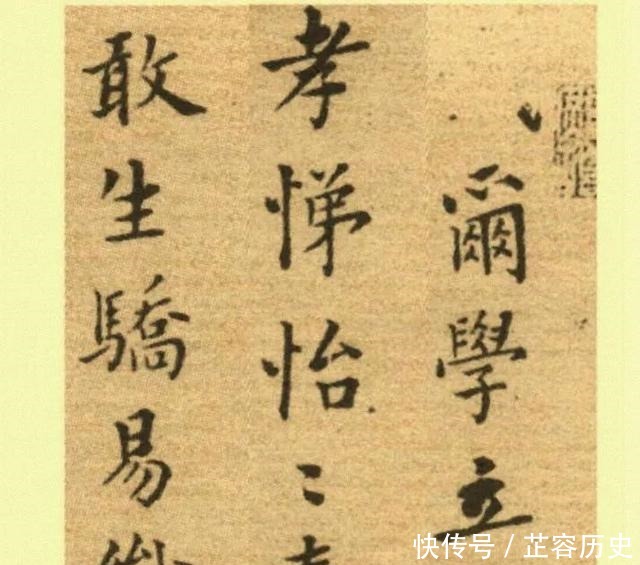 爾學立
孝悌怡〻
敢生驕易
快传号 / 芷容历史